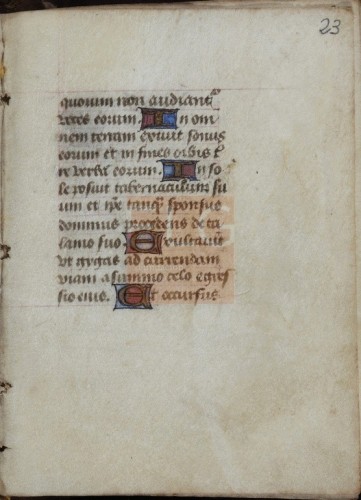 23
quorum non audiant
voces eorum. In om
nem terram exivit sonus
eorum et in fines orbis t
re verba eorum. In so
le posuit tabernaculum su
um et ipe tanq sponsus
dominus procedens de ta
lamo suo. Exultavit
ut gygas ad currendam
viam a summo celo egres
sio eius. Et occursus